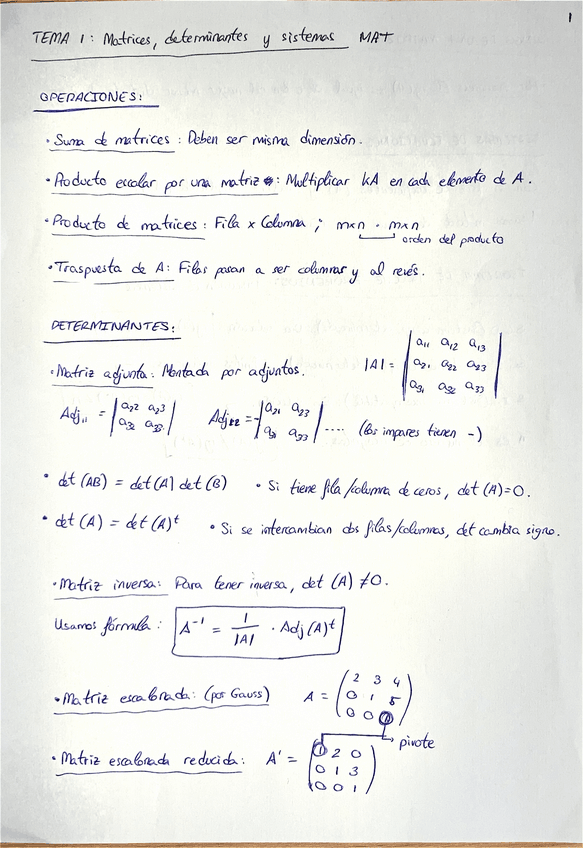 1
TEMA 1: Matrices, determinantes y sistemas MAT
OPERACIONES:
· Suma de matrices: Deben ser misma dimensión.
· Producto escalar por una matriz: Multiplicar kA en cada elemento de A.
· Producto de matrices: Fila x Columna; m×n · m×n
orden del producto
· Traspuesta de A: Filas pasan a ser columnas y al revés.
DETERMINANTES:
· Matriz adjunta: Montada por adjuntos. |A| = | a11 a12 a13
a21 a22 a23
a31 a32 a33 |
Adj11 = | a22 a23
a32 a33 | Adj12 = - | a21 a23
a31 a33 | .... (los impares tienen -)
· det(AB) = det(A) det(B) · Si tiene fila/columna de ceros, det(A)=0.
· det(A) = det(A)t · Si se intercambian dos filas/columnas, det cambia signo.
· Matriz inversa: Para tener inversa, det(A) ≠0.
Usamos fórmula: A-1 = 1/|A| · Adj(A)t
· Matriz escalonada: (por Gauss) A = ( 2 3 4
0 1 5
0 0 1 )
pivote
· Matriz escalonada reducida: A' = ( 1 2 0
0 1 3
0 0 1 )